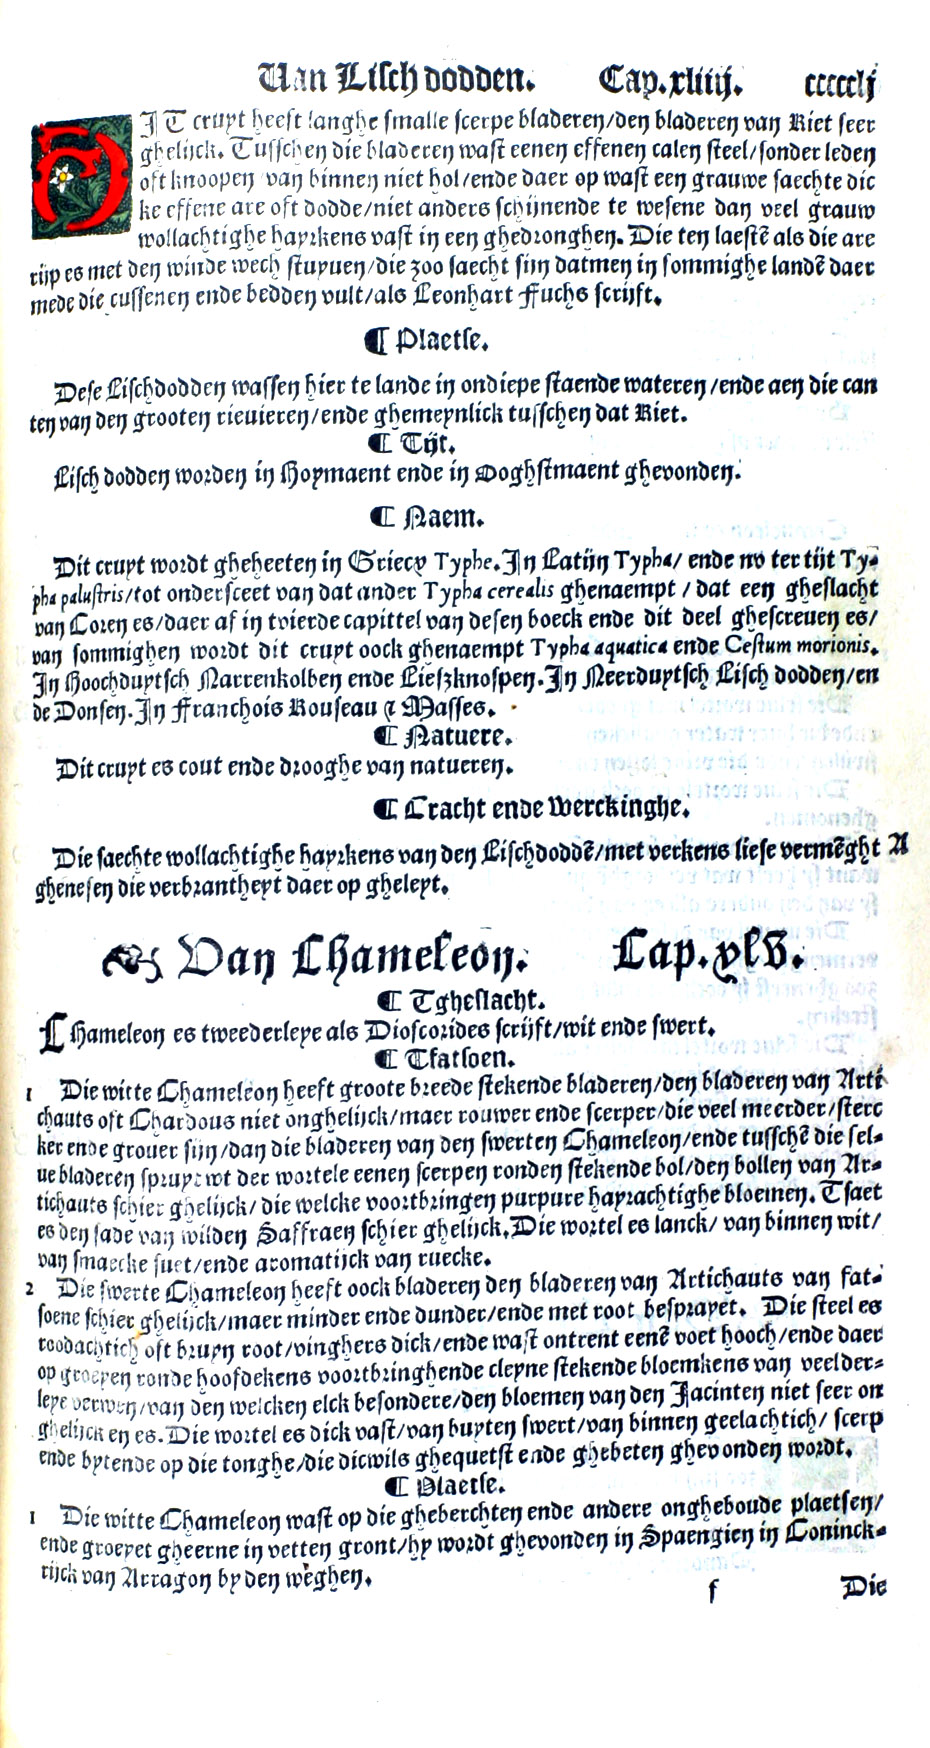 Van Lisch dodden. Cap. xliiij. ccccclj
DIT cruyt heeft langhe smalle scerpe bladeren/den bladeren van Riet seer
ghelijck. Tusschen die bladeren wast eenen effenen calen steel/sonder leden
oft knoopen van binnen niet hol/ende daer op wast een grauwe saechte dic
ke effene are oft dodde/niet anders schijnende te wesene dan veel grauw
wollachtighe hayrkens vast in een ghedronghen. Die ten laestē als die are
rijp es met den winde wech stuyuen/die zoo saecht sijn datmen in sommighe landē daer
mede die cussenen ende bedden vult/als Leonhart Fuchs scrijft.
¶ Plaetse.
Dese Lischdodden wassen hier te lande in ondiepe staende wateren/ende aen die can
ten van den grooten rieuieren/ende ghemeynlick tusschen dat Riet.
¶ Tijt.
Lisch dodden worden in Hoymaent ende in Ooghstmaent ghevonden.
¶ Naem.
Dit cruyt wordt gheheeten in Griecx Typhe. In Latijn Typha/ ende nv ter tijt Ty-
pha palustris/tot ondersceet van dat ander Typha cerealis ghenaempt / dat een gheslacht
van Coren es/daer af in tvierde capittel van desen boeck ende dit deel ghescreuen es/
van sommighen wordt dit cruyt oock ghenaempt Typha aquatica ende Cestum morionis.
In Hoochduytsch Narrenkolben ende Lieszknospen. In Neerduytsch Lisch dodden/en
de Donsen. In Franchois Rouseau ⁊ Masses.
¶ Natuere.
Dit cruyt es cout ende drooghe van natueren.
¶ Cracht ende Werckinghe.
Die saechte wollachtighe hayrkens van den Lischdoddē/met verkens liese vermēght A
ghenesen die verbrantheyt daer op gheleyt.
Van Chameleon. Cap. xlv.
¶ Tgheslacht.
CHameleon es tweederleye als Dioscorides scrijft/wit ende swert.
¶ Tfatsoen.
1 Die witte Chameleon heeft groote breede stekende bladeren/den bladeren van Arti
chauts oft Chardous niet onghelijck/maer rouwer ende scerper/die veel meerder/sterc
ker ende grouer sijn/dan die bladeren van den swerten Chameleon/ende tusschē die sel-
ue bladeren spruyt wt der wortele eenen scerpen ronden stekende bol/den bollen van Ar-
tichauts schier ghelijck/die welcke voortbringen purpure hayrachtighe bloemen. Tsaet
es den sade van wilden Saffraen schier ghelijck. Die wortel es lanck/ van binnen wit/
van smaecke suet/ende aromatijck van ruecke.
2 Die swerte Chameleon heeft oock bladeren den bladeren van Artichauts van fat-
soene schier ghelijck/maer minder ende dunder/ende met root besprayet. Die steel es
roodachtich oft bruyn root/vinghers dick/ende wast ontrent eenē voet hooch/ende daer
op groeyen ronde hoofdekens voortbringhende cleyne stekende bloemkens van veelder-
leye verwen/van den welcken elck besondere/den bloemen van den Jacinten niet seer on
ghelijck en es. Die wortel es dick vast/van buyten swert/van binnen geelachtich/ scerp
ende bytende op die tonghe/die dicwils ghequetst ende ghebeten ghevonden wordt.
¶ Plaetse.
1 Die witte Chameleon wast op die gheberchten ende andere ongheboude plaetsen/
ende groeyet gheerne in vetten gront/hy wordt ghevonden in Spaengien in Coninck-
rijck van Arragon by den weghen.
f Die